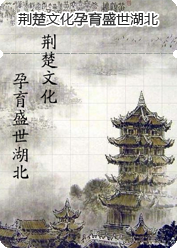 荆楚文化孕育盛世湖北
荆楚文化
孕育盛世湖北